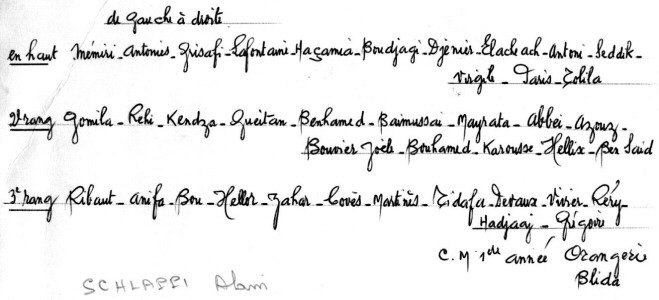 de gauche à droite
en haut Mémiri - Antonies - Grisafi - Lafontaini - Haçamia - Boudjagi - Djénier - Elachach - Antoni - Seddik -
Virgili - Paris - Zolila
2e rang Gomila - Rehi - Kendza - Gueitan - Benhamed - Baimussai - Mayrata - Abbei - Azouz -
Bouvier Joël - Bouhamed - Karousse - Hellix - Ben Said
3e rang Ribaut - Anifa - Bou - Hellor - Zahar - Covès - Martinès - Zidafa - Devaux - Vivier - Réry -
Hadjaaj - Grégoire
C.M 1de année Orangeri
Blida
SCHLAPPI Alain